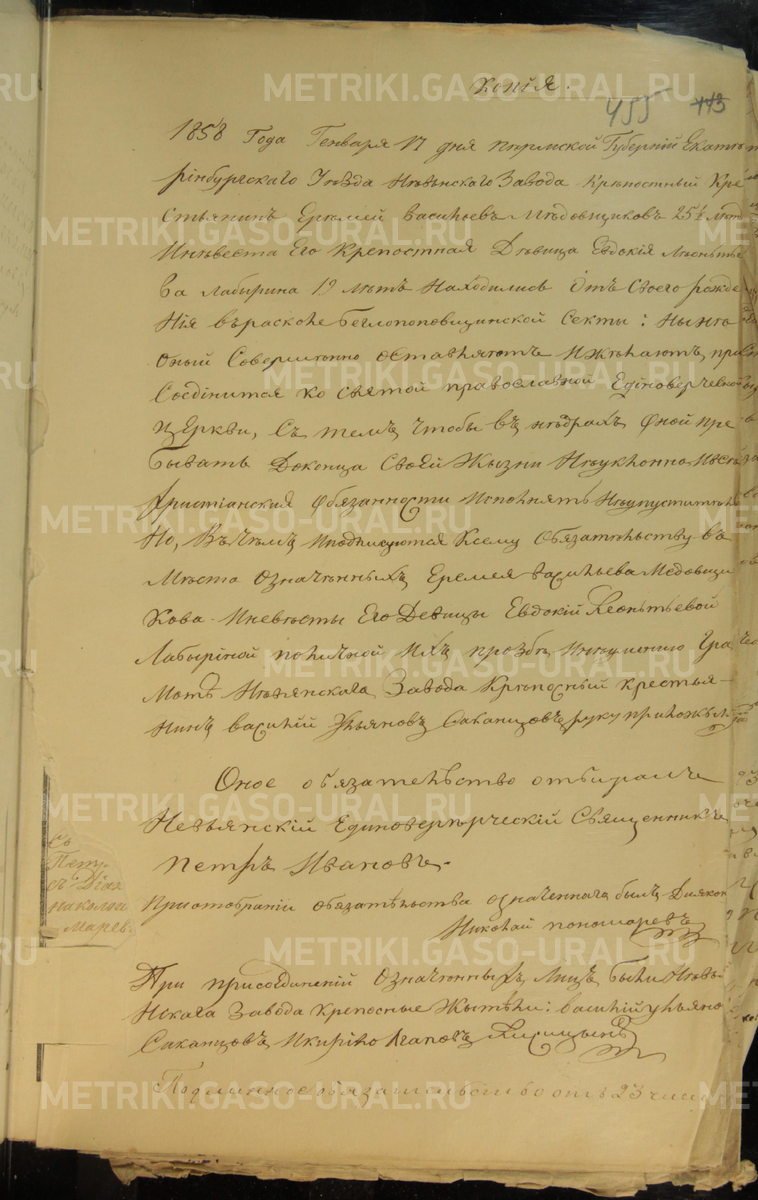 Копія.
455 443
1858 Года Генваря 17 дня Пермской Губерніи Екатѣ
рінбургскаго Уѣзда Нѣвьянскаго Завода Крѣпостный Кре
стьянинъ Ерѣмей Васильевъ Мѣдовщиковъ 25½ лѣт
Инѣвеста Его Крепостная Дѣвица Евдокія Лѣонтьѣ
ва Лабирина 19 лѣтъ Находились Отъ Своего рожде
нія въ расколе Беглопоповщинской Секты: Нынѣ
оный Совершѣнно оставляютъ Ижѣлаютъ при
Соедінится ко Святой православной Едіноверческой
Церкви, Съ темъ чтобы въ нѣдрахъ Оной пре
бывать До конца Своей Жызни Нѣуклонно Ивсѣ
Христіанския Обязанности исполнять Нѣупустительно
Но, Въчѣмъ Иподписуются Ксему Обязательству въ
Мѣста Означѣнныхъ Еремея Васильева Медовщи
кова Иневѣсты Его Девицы Евдокіи Леонтьевой
Лабыріной поличной Ихъ прозбѣ Инеумѣнию Гра
мотѣ Нѣвянскаго Завода Крѣпосный крестья-
нинъ Василій Ульяновъ Саканцовъ руку приложылъ
Оное обязательство отбиралъ
Невьянскій Единоверческій Священникъ
Петръ Ивановъ.
Приотобраніи обязательства означеннаго былъ Диякон
Николай пономаревъ
При присоединеніи Означѣнныхъ Лицъ были Нѣвья
нскаго Завода крепосные Жытѣли: Василій Ульяно
Саканцовъ Икирило Агаповъ Лисицынъ
Подлинное обязательство отъ 23 числ
Съ
Пет
Дія
николай
Марев
METRIKI.GASO-URAL.RU